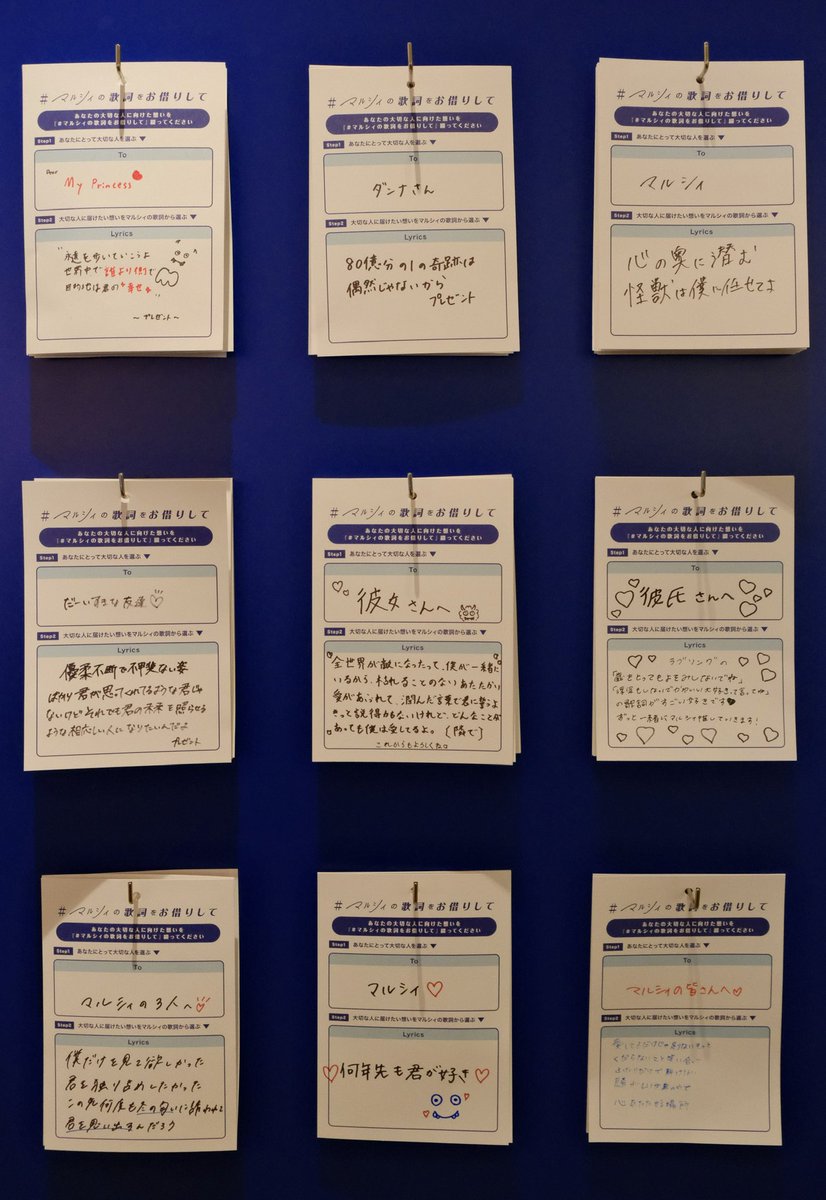 #マルシィの歌詞をお借りして
あなたの大切な人に向けた想いを
「#マルシィの歌詞をお借りして」綴ってください
Step1 あなたにとって大切な人を選ぶ▼
To
Dear
My Princess
Step2 大切な人に届けたい想いをマルシィの歌詞から選ぶ▼
Lyrics
"永遠を歩いていこうよ
世界中で誰より側で
目的地は君の"幸せ"
〜プレゼント〜
#マルシィの歌詞をお借りして
あなたの大切な人に向けた想いを
「#マルシィの歌詞をお借りして」綴ってください
Step1 あなたにとって大切な人を選ぶ▼
To
ダンナさん
Step2 大切な人に届けたい想いをマルシィの歌詞から選ぶ▼
Lyrics
80億分の1の奇跡は
偶然じゃないから
プレゼント
#マルシィの歌詞をお借りして
あなたの大切な人に向けた想いを
「#マルシィの歌詞をお借りして」綴ってください
Step1 あなたにとって大切な人を選ぶ▼
To
マルシィ
Step2 大切な人に届けたい想いをマルシィの歌詞から選ぶ▼
Lyrics
心の奥に潜む
怪獣は僕に任せてよ
#マルシィの歌詞をお借りして
あなたの大切な人に向けた想いを
「#マルシィの歌詞をお借りして」綴ってください
Step1 あなたにとって大切な人を選ぶ▼
To
だーいすきな友達♡
Step2 大切な人に届けたい想いをマルシィの歌詞から選ぶ▼
Lyrics
優柔不断で不甲斐ない姿
ばかり 君が思ってくれてるような君じゃ
ないけど それでも君の未来を照らせる
ような相応しい人になりたいんだよ
プレゼント
#マルシィの歌詞をお借りして
あなたの大切な人に向けた想いを
「#マルシィの歌詞をお借りして」綴ってください
Step1 あなたにとって大切な人を選ぶ▼
To
彼女さんへ
Step2 大切な人に届けたい想いをマルシィの歌詞から選ぶ▼
Lyrics
全世界が敵になったって、僕が一緒に
いるから、枯れることのないあたたかい
愛があふれて、潤んだ言葉で君に誓うよ
きっと説得力もないけれど、どんなことが
あっても僕は愛してるよ。(隣で)
これからもよろしくね。
#マルシィの歌詞をお借りして
あなたの大切な人に向けた想いを
「#マルシィの歌詞をお借りして」綴ってください
Step1 あなたにとって大切な人を選ぶ▼
To
彼氏さんへ
Step2 大切な人に届けたい想いをマルシィの歌詞から選ぶ▼
Lyrics
ラブソングの
「歳をとってもよそみしないでね」
「浮気もしないでかわいい大好きって言ってね」
の歌詞がすごい好きです♥
ずっと一緒にマルシィ推していきます!
#マルシィの歌詞をお借りして
あなたの大切な人に向けた想いを
「#マルシィの歌詞をお借りして」綴ってください
Step1 あなたにとって大切な人を選ぶ▼
To
マルシィの3人へ♡
Step2 大切な人に届けたい想いをマルシィの歌詞から選ぶ▼
Lyrics
僕だけを見て欲しかった
君を独り占めしたかった
この先何度もその匂いに誘われて
君を思い出すんだろう
#マルシィの歌詞をお借りして
あなたの大切な人に向けた想いを
「#マルシィの歌詞をお借りして」綴ってください
Step1 あなたにとって大切な人を選ぶ▼
To
マルシィ♡
Step2 大切な人に届けたい想いをマルシィの歌詞から選ぶ▼
Lyrics
♡何年先も君が好き♡
#マルシィの歌詞をお借りして
あなたの大切な人に向けた想いを
「#マルシィの歌詞をお借りして」綴ってください
Step1 あなたにとって大切な人を選ぶ▼
To
マルシィの皆さんへ♡
Step2 大切な人に届けたい想いをマルシィの歌詞から選ぶ▼
Lyrics
くだらないこと笑い合い